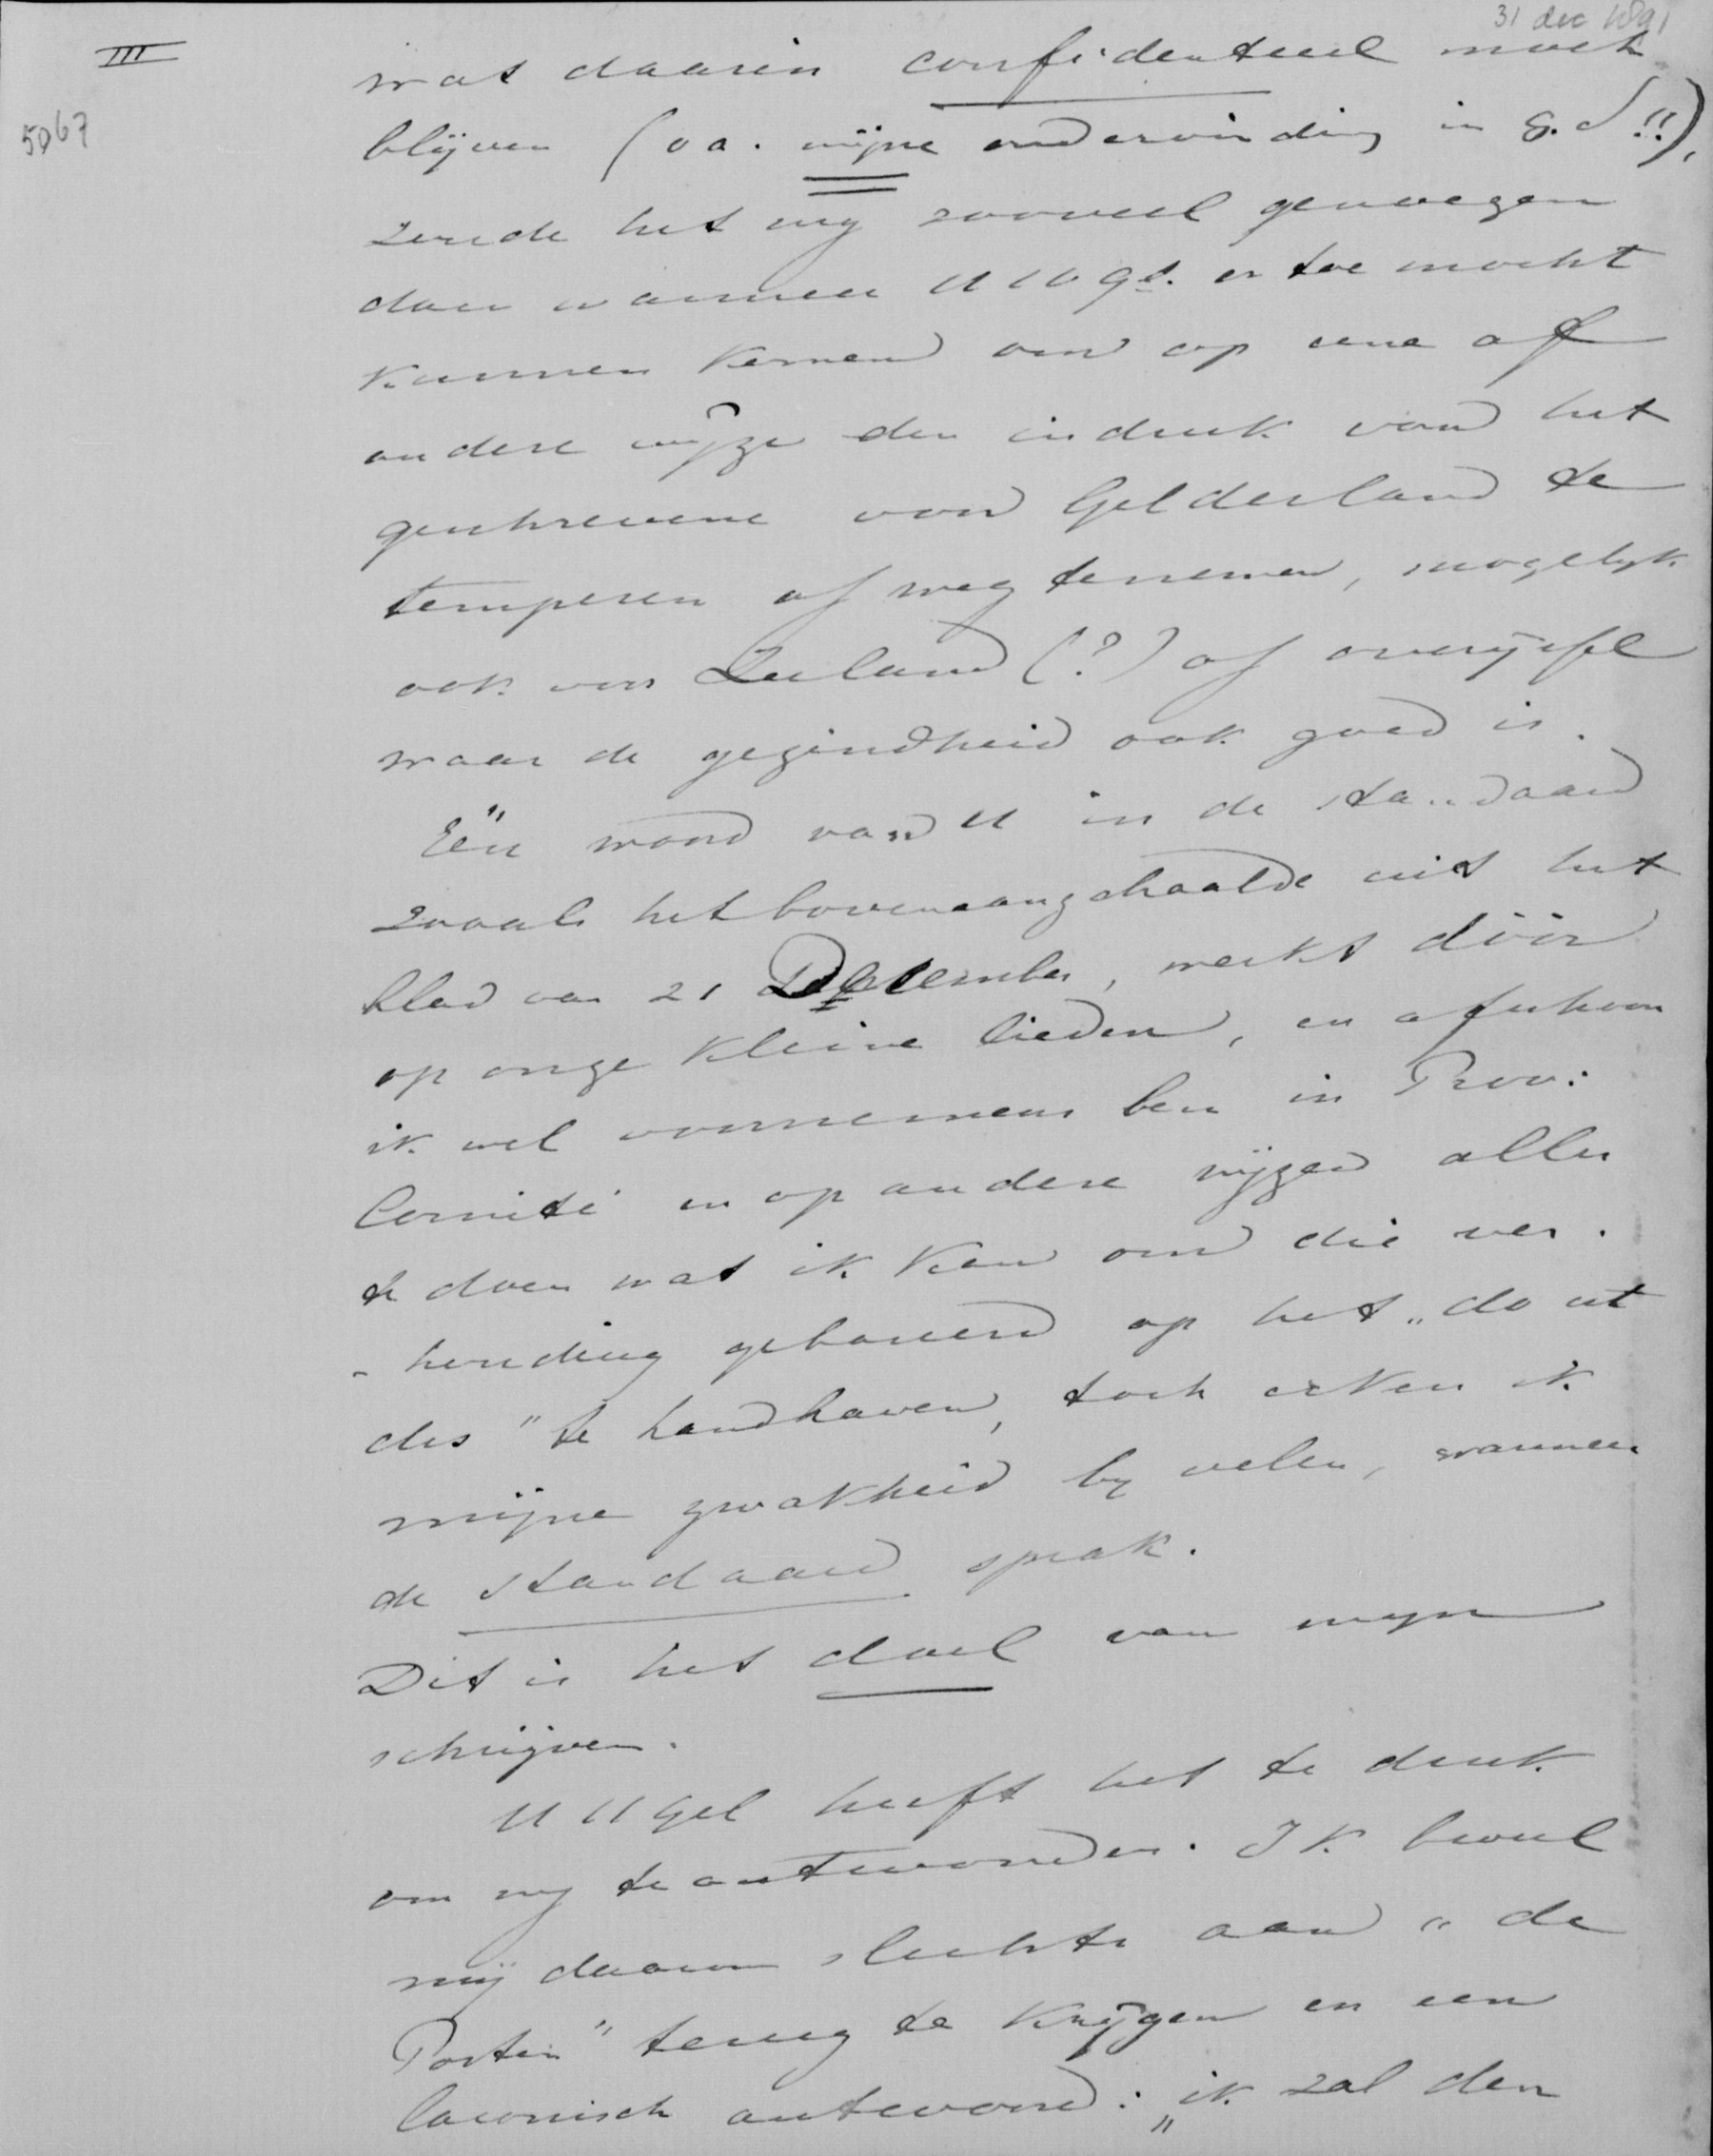 31 dec 1891
III
wat daarin confidentieel moet
5067
blijven (oa. mijne ondervinding in g. d!!),
zoude het mij zooveel genoegen
doen wanneer UWGd. er toe mocht
kunnen komen om op eene of
andere wijze den indruk van het
geschrevene voor Gelderland te
temperen of weg te nemen, mogelijk
ook voor Zeeland (?) of overijssel
waar de gezindheid ook goed is.
Eén woord van U in de standaard
zooals het bovenaangehaalde uit het
blad van 21 December, werkt dóór
op onze kleine lieden, en ofschoon
ik wel voornemens ben in Prov:
Comité en op andere wijzen alles
te doen wat ik kan om die ver-
-houding gebaseerd op het „do ut
des" te handhaven, toch erken ik
mijne zwakheid bij velen, wanneer
de standaard sprak.
Dit is het doel van mijn
schrijven.
UWGel heeft het te druk
om mij te antwoorden. Ik beveel
mij daarom slechts aan „de
Porten" terug te krijgen en een
laconisch antwoord: „ik zal den